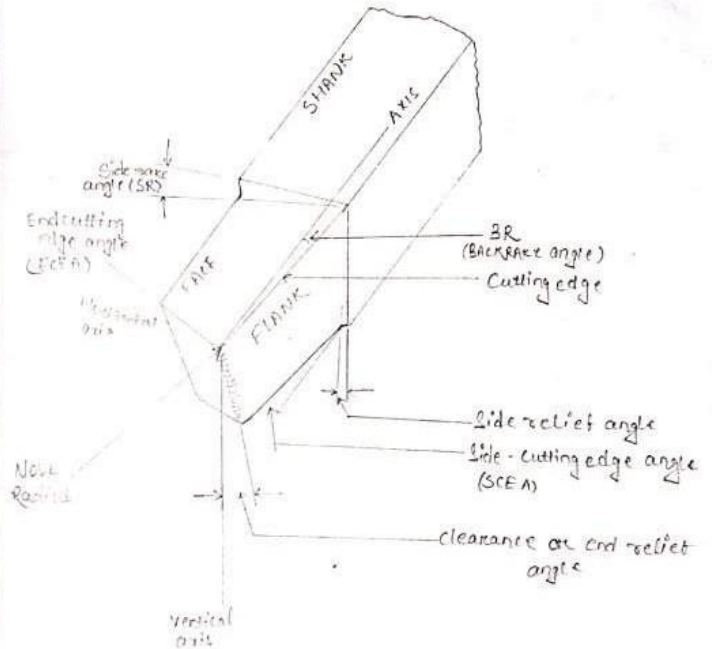 SHANK
AXIS
Side rake
angle (SR)
End cutting
edge angle
(ECEA)
FACE
BR
(BACKRAKE angle)
Cutting edge
FLANK
axis
Side relief angle
Side-Cutting edge angle
(SCEA)
Nose
Radius
Clearance or End relief
angle
Vertical
axis